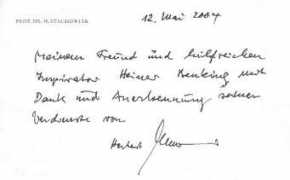 PROF. DR. H. STACHOWIAK
12. Mai 2004
Meinem Freund und hilfreichen
Inspirator Heiner Benking mit
Dank und Anerkennung seiner
Verdienste von
Herbert